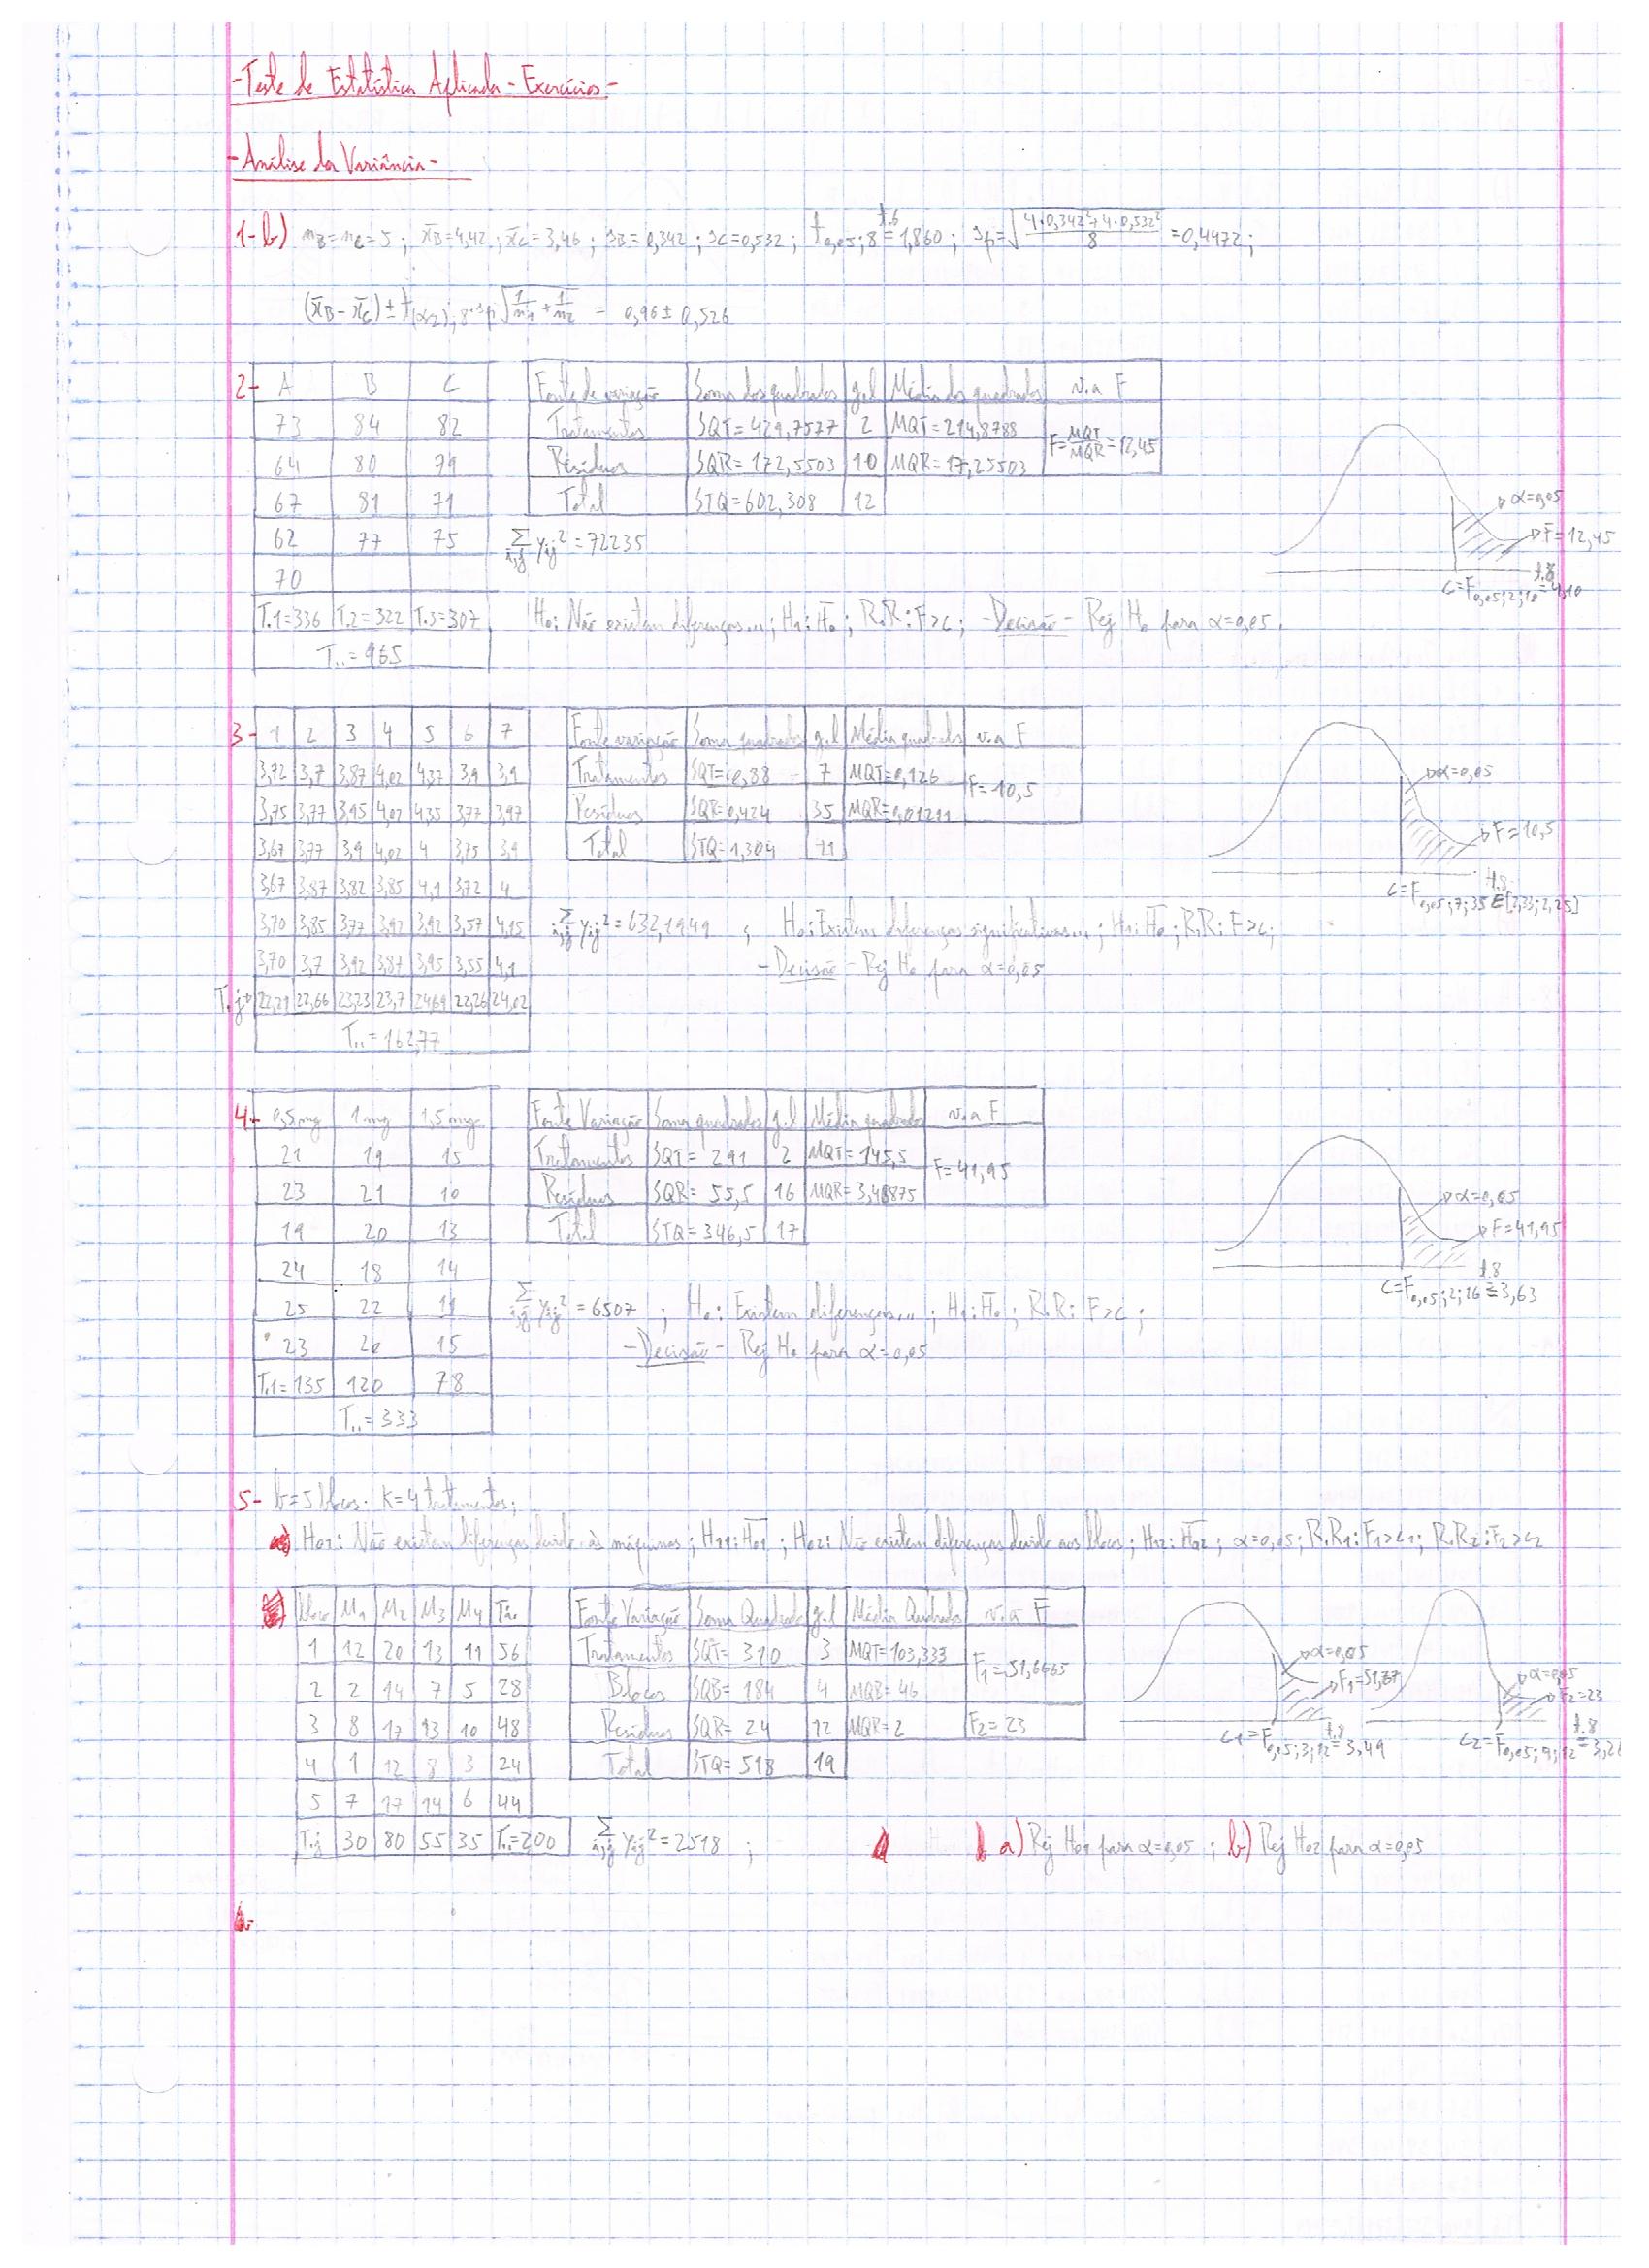 -Teste de Estatística Aplicada - Exercícios-
-Análise da Variância-
1-b) nB=nC=5 ; x̄B=4,42 ; x̄C=3,46 ; sB=0,342 ; sC=0,532 ; t0,05;8 t.6= 1,860 ; sp=√(4·0,342²+4·0,532²/8) =0,4472;
(x̄B-x̄C) ± t(α/2);8·sp√(1/n1 + 1/n2) = 0,96 ± 0,526
2- A B C
73 84 82
64 80 79
67 81 71
62 77 75
70
T.1=336 T.2=322 T.3=307
T..=965
Fonte de variação Soma dos quadrados g.l Média dos quadrados v.a F
Tratamentos SQT=429,7577 2 MQT=214,8788 F=MQT/MQR=12,45
Resíduos SQR=172,5503 10 MQR=17,25503
Total STQ=602,308 12
Σi,j yij²=72235
α=0,05
F=12,45
C=F0,05;2;10 t.8= 4,10
H0: Não existem diferenças...; H1: H̄0; R.R: F>c; -Decisão- Rej H0 para α=0,05.
3- 1 2 3 4 5 6 7
3,72 3,7 3,87 4,02 4,37 3,9 3,9
3,75 3,77 3,95 4,02 4,35 3,77 3,97
3,67 3,77 3,9 4,02 4 3,75 3,9
3,67 3,87 3,82 3,85 4,1 3,72 4
3,70 3,85 3,77 3,92 3,92 3,57 4,15
3,70 3,7 3,92 3,87 3,95 3,55 4,1
T.j= 22,21 22,66 23,23 23,7 24,69 22,26 24,02
T..=162,77
Fonte variação Soma quadrados g.l Média quadrados v.a F
Tratamentos SQT=0,88 7 MQT=0,126 F=10,5
Resíduos SQR=0,424 35 MQR=0,01211
Total STQ=1,304 41
α=0,05
F=10,5
C=F0,05;7;35 t.8 E[2,33;2,25]
Σi,j yij²=632,1949 ; H0: Existem diferenças significativas...; H1: H̄0; R.R: F>c;
-Decisão- Rej H0 para α=0,05
4- 0,5mg 1mg 1,5mg
21 19 15
23 21 10
19 20 13
24 18 14
25 22 11
23 20 15
T.1=135 120 78
T..=333
Fonte Variação Soma quadrados g.l Média quadrados v.a F
Tratamentos SQT=291 2 MQT=145,5 F=41,95
Resíduos SQR=55,5 16 MQR=3,46875
Total STQ=346,5 17
α=0,05
F=41,95
C=F0,05;2;16 t.8= 3,63
Σi,j yij²=6507 ; H0: Existem diferenças... ; H1: H̄0; R.R: F>c ;
-Decisão- Rej H0 para α=0,05
5- b=5 blocos. K=4 tratamentos;
a) H01: Não existem diferenças devido às máquinas; H11: H̄01; H02: Não existem diferenças devido aos blocos; H12: H̄02; α=0,05; R.R1: F1>c1; R.R2: F2>c2
bloco M1 M2 M3 M4 Ti.
1 12 20 13 11 56
2 2 14 7 5 28
3 8 17 13 10 48
4 1 12 8 3 24
5 7 17 14 6 44
T.j 30 80 55 35 T..=200
Fonte Variação Soma Quadrado g.l Média Quadrados v.a F
Tratamentos SQT=310 3 MQT=103,333 F1=51,6665
Blocos SQB=184 4 MQB=46
Resíduos SQR=24 12 MQR=2 F2=23
Total STQ=518 19
α=0,05
F1=51,67
C1=F0,05;3;12 t.8= 3,49
α=0,05
F2=23
C2=F0,05;4;12 t.8= 3,26
Σi,j yij²=2518 ; a) Rej H01 para α=0,05 ; b) Rej H02 para α=0,05